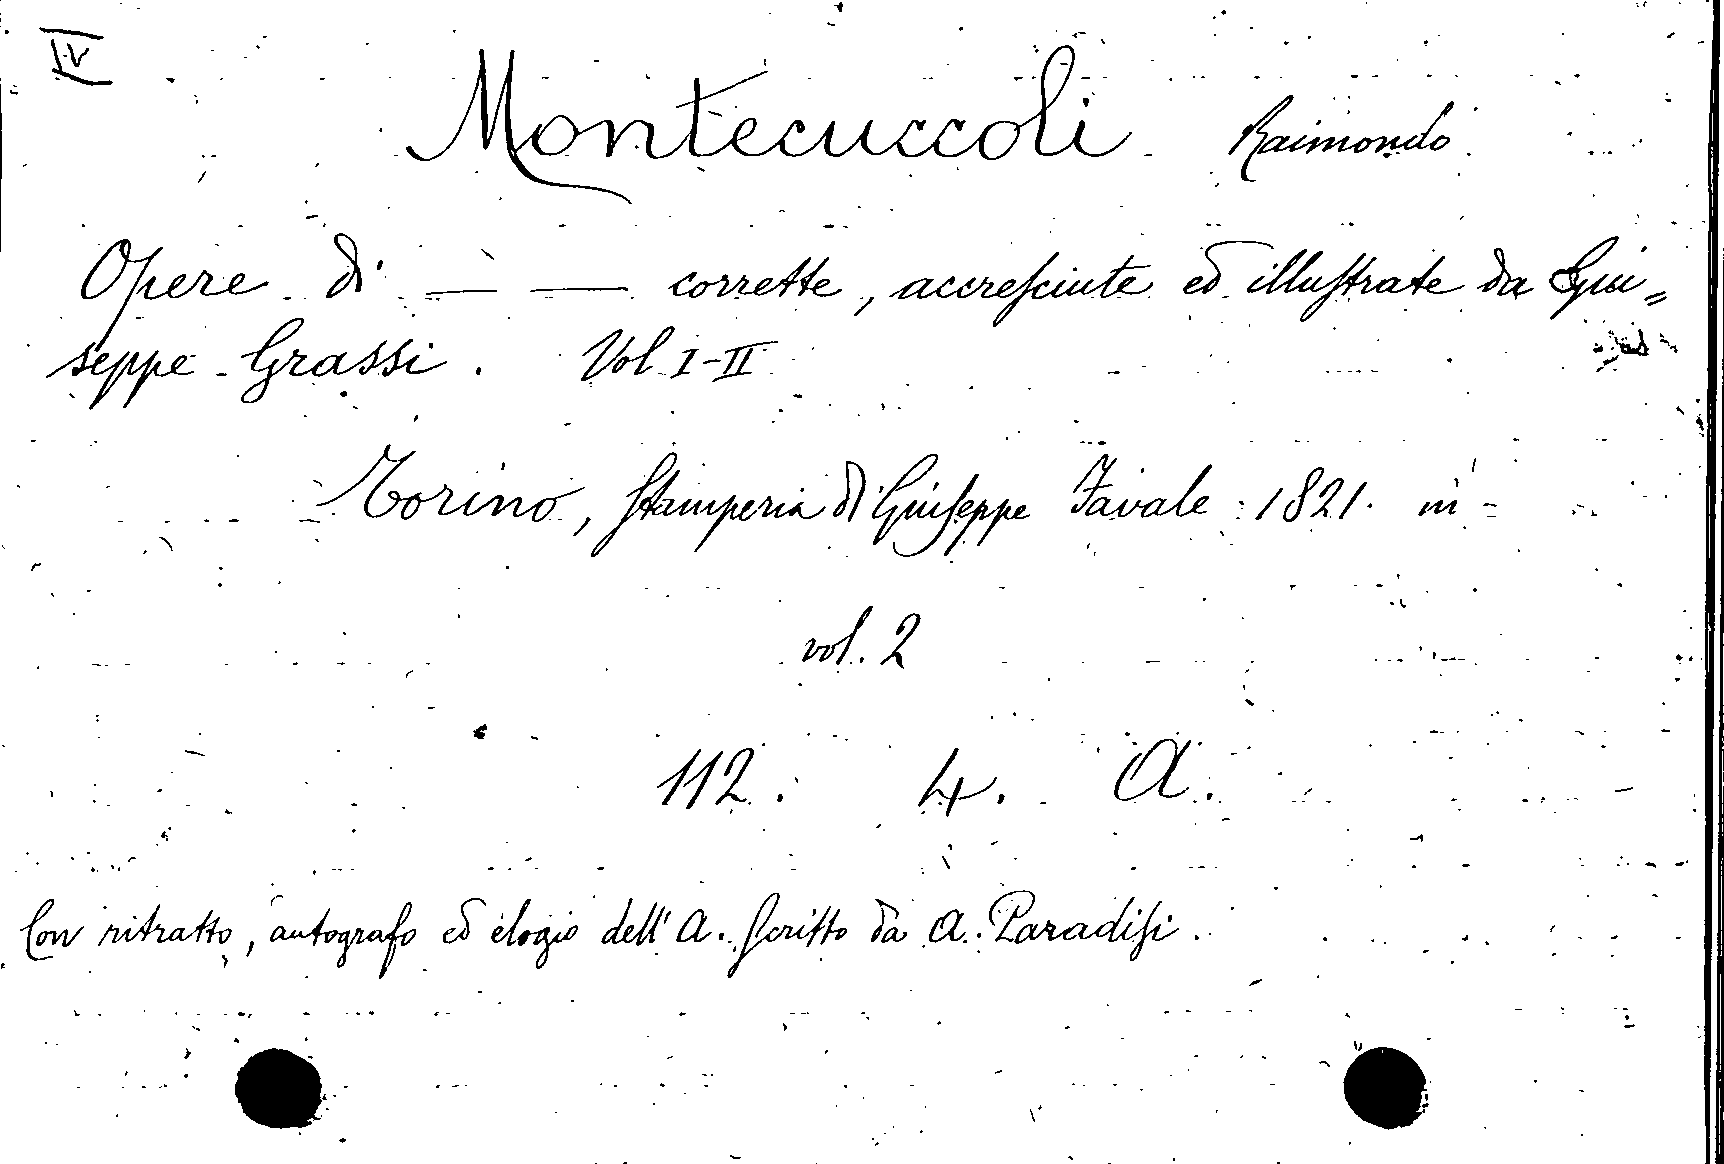 IV
Montecuccoli Raimondo
Opere di — — corrette, accresciute ed illustrate da Giu=
seppe Grassi. Vol. I-II
Torino, Stamperia di Giuseppe Favale 1821. in-
vol. 2
112. 4. A.
Con ritratto, autografo ed elogio dell' A. scritto da A. Paradisi.